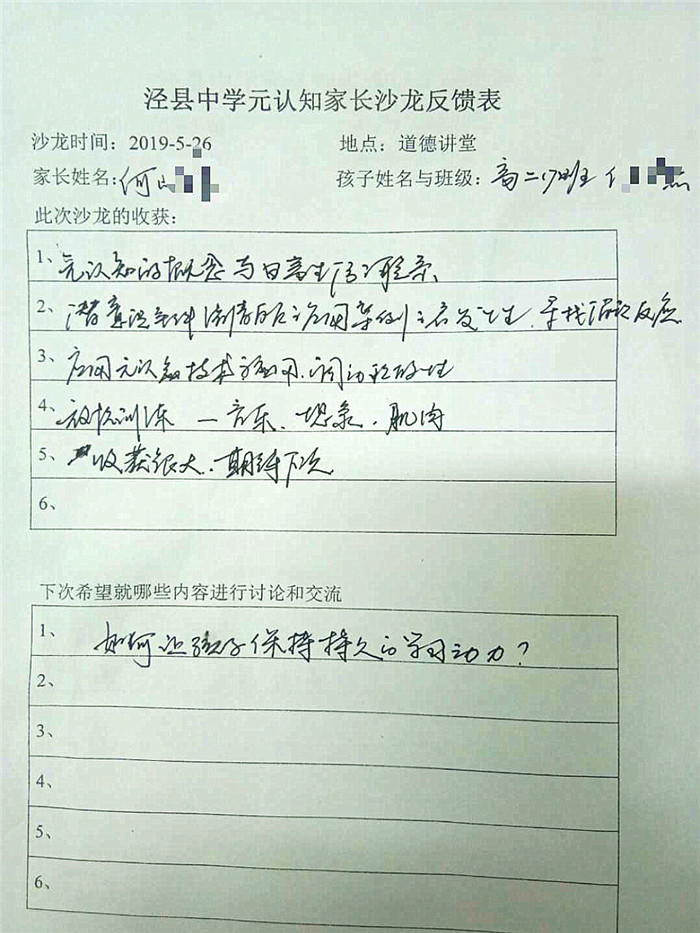 泾县中学元认知家长沙龙反馈表
沙龙时间：2019-5-26 地点：道德讲堂
家长姓名: 何 孩子姓名与班级：高二(7)班
此次沙龙的收获：
1、元认知的概念与日常生活联系、
2、潜意识条件 寻找 反应
3、应用元认知技术 调动积极性
4、放松训练 — 音乐、想象、肌肉
5、收获很大、期待下次
6、
下次希望就哪些内容进行讨论和交流
1、如何让孩子保持持久的学习动力？
2、
3、
4、
5、
6、